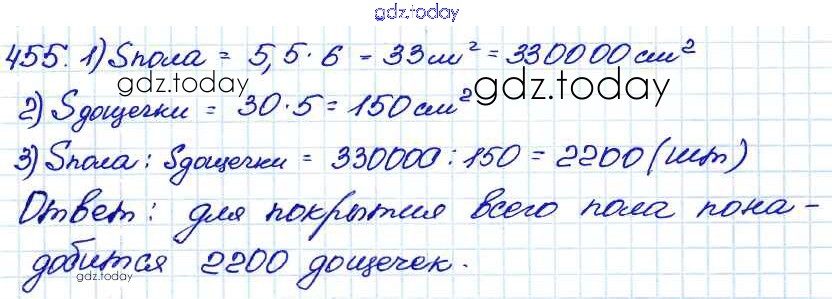 gdz.today
455. 1) Sпола = 5,5 · 6 = 33 м² = 330000 см²
gdz.today
gdz.today
2) Sдощечки = 30 · 5 = 150 см²
3) Sпола : Sдощечки = 330000 : 150 = 2200 (шт)
Ответ: для покрытия всего пола пона-
добится 2200 дощечек.
gdz.today